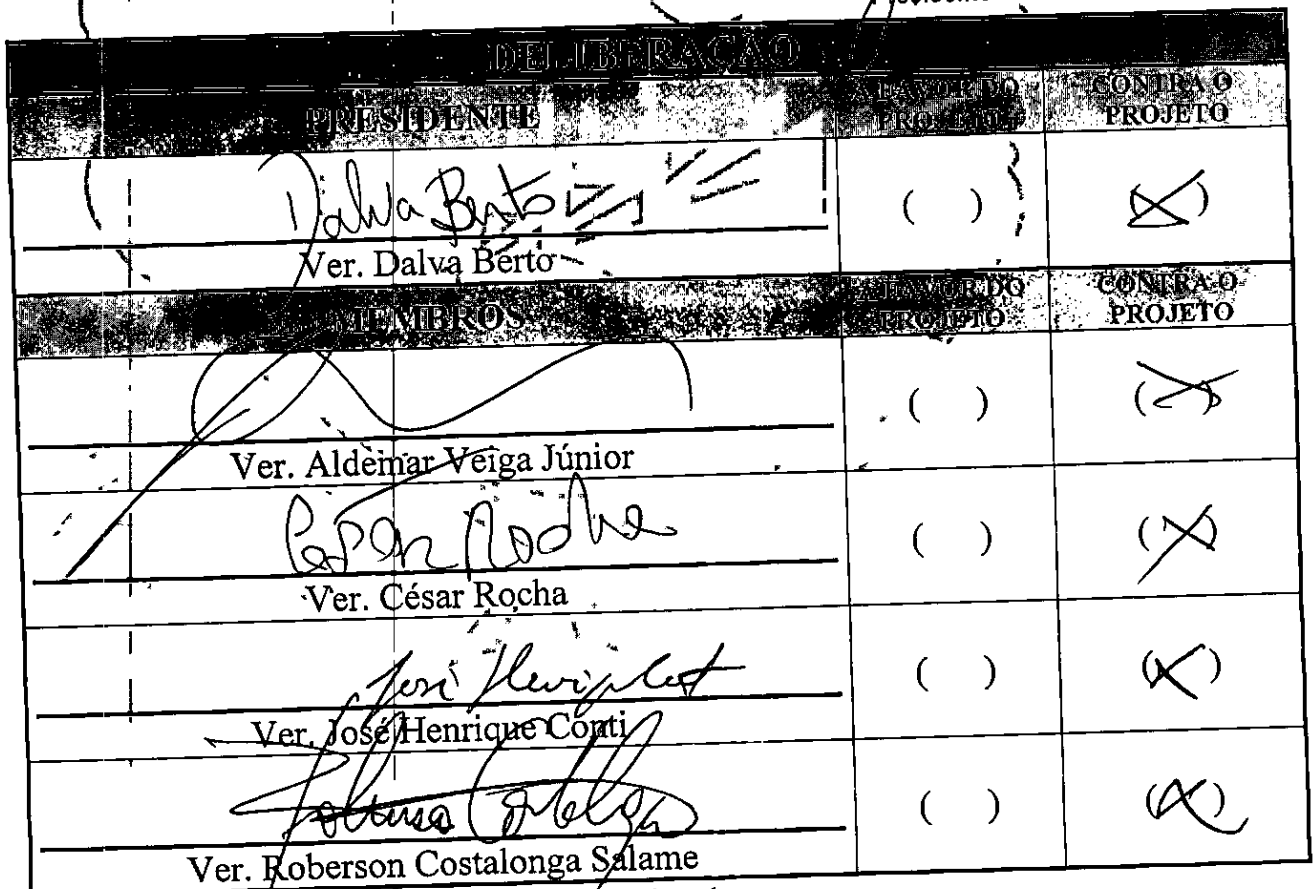 DELIBERAÇÃO
PRESIDENTE A FAVOR DO PROJETO CONTRA O PROJETO
Dalva Berto ( ) (X)
Ver. Dalva Berto
MEMBROS A FAVOR DO PROJETO CONTRA O PROJETO
( ) (X)
Ver. Aldemar Veiga Júnior
César Rocha ( ) (X)
Ver. César Rocha
José Henrique ( ) (X)
Ver. José Henrique Conti
( ) (X)
Ver. Roberson Costalonga Salame